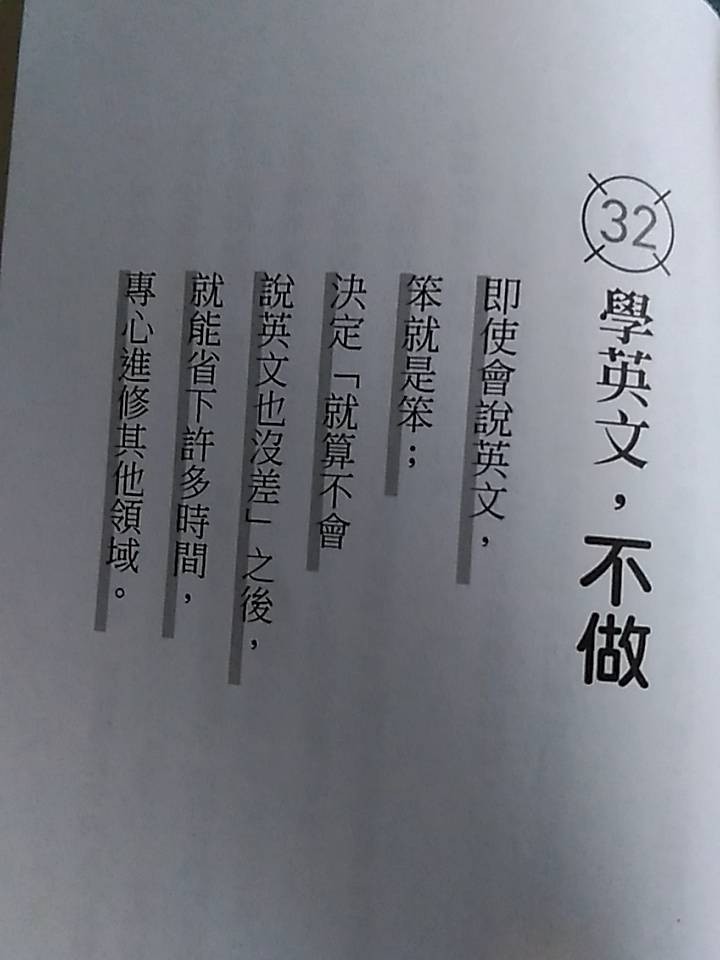 32
學英文，不做
即使會說英文，
笨就是笨；
決定「就算不會
說英文也沒差」之後，
就能省下許多時間，
專心進修其他領域。